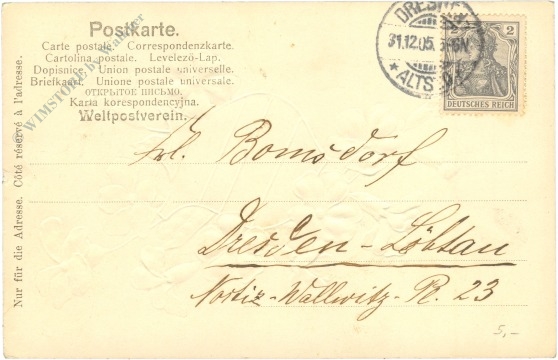 Postkarte.
Carte postale. Correspondenzkarte.
Cartolina postale. Levelező-Lap.
Dopisnice. Unione postale universelle.
Briefkaart. Unione postale universale.
ОТКРЫТОЕ ПИСЬМО.
Karta korespondencyjna.
Weltpostverein.
WIMSTORE by Walliser
Nur für die Adresse. Côté réservé à l'adresse.
DRESDEN
31.12.05. 5-6N.
* ALTST.
2 2
DEUTSCHES REICH
Frl. Bomsdorf
Dresden-Löbtau
Nostiz-Wallwitz-Pl. 23
5,-